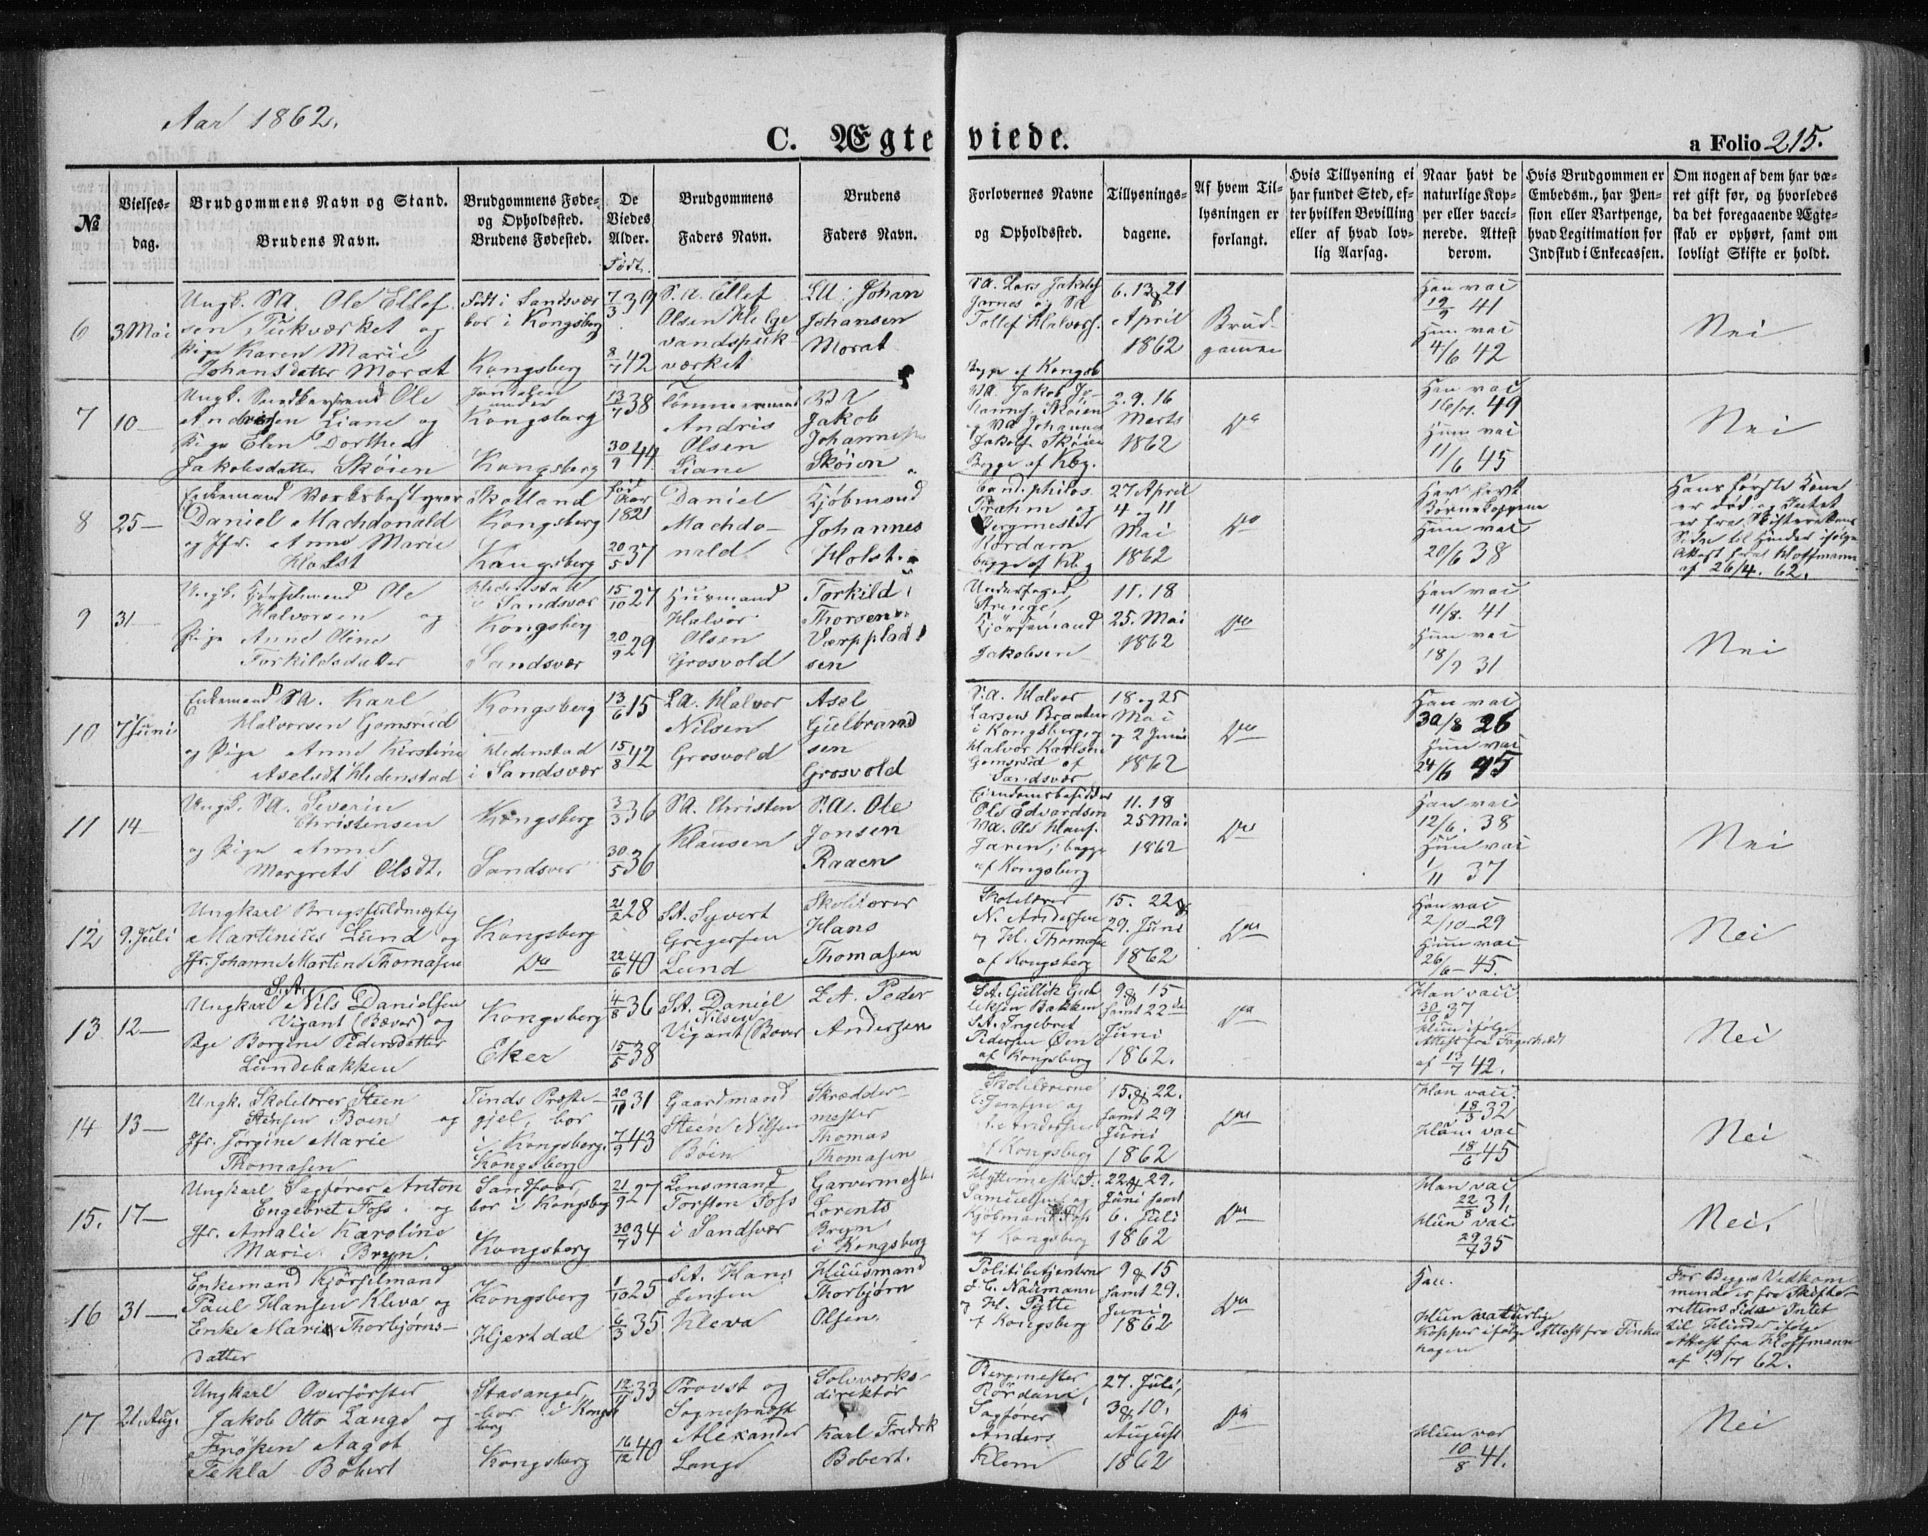 Aar 1862.
C. Ægteviede.
a Folio 215.
№
Vielses-
dag.
Brudgommens Navn og Stand.
Brudens Navn.
Brudgommens Føde-
og Opholdssted.
Brudens Fødested.
De
Viedes
Alder.
Født.
Brudgommens
Faders Navn.
Brudens
Faders Navn.
Forlovernes Navne
og Opholdssted.
Tillysnings-
dagene.
Af hvem Til-
lysningen er
forlangt.
Hvis Tillysning ei
har fundet Sted, ef-
ter hvilken Bevilling
eller af hvad lov-
lig Aarsag.
Naar havt de
naturlige Kop-
per eller vacci-
nerede. Attest
derom.
Hvis Brudgommen er
Embedsm., har Pen-
sion eller Vartpenge,
hvad Legitimation for
Indskud i Enkecassen.
Om nogen af dem har væ-
ret gift før, og hvorledes
da det foregaaende Ægte-
skab er ophørt, samt om
lovligt Skifte er holdt.
6
3 Mai
Ungk. SA. Ole Ellef
sen og
Pige Karen Marie
Johansdatter Morat
Født i Sandsvær
bor i Kongsberg
Kongsberg
7/3 39
8/7 42
S.A. Ellef
Olsen Helge
vandspuk
værket
Johan
Johansen
Morat
SA. Lars Jakobs
Tollef Halvors.
Begge af Kongsb
6. 13 & 21
April
1862
Brud-
gommen
Han vac
19/9 41
Hun vac
4/6 42
Nei
7
10 —
Ungk. Snedkersvend Ole
Andersen Liane og
Pige Elen Dorthea
Jakobsdatter Skøien
Kongsberg
Kongsberg
13/7 38
30/9 44
Tømmermand
Andris
Olsen
Liane
Jakob
Johannes
Skøien
Jakob Jo-
hannes Skøien
og Johannes
Jakobs. Skøien
Begge af Kbg.
2. 9. 16
Marts
1862
Do
Han vac
16/7 49
Hun vac
11/6 45
Nei
8
25 —
Enkemand Værksbestyrer
Daniel Machdonald
og Jfr. Anne Marie
Holst
Skotland
Kongsberg
Kongsberg
født
Aar
1821
20/5 37
Daniel
Machdo-
nald
Kjøbmand
Johannes
Holst.
Cand. philos.
Præhm og
Bergmester
Rørdam
begge af Kbg
27 April
4 og 11
Mai
1862
Do
Har havt
Børnekopperne
Hun vac
20/6 38
Hans første Kone
er død og Intet
er fra Skifterettens
Side til Hinder ifølge
Attest fra Hoffmann
af 26/4. 62.
9
31 —
Ungk. Kjørselmand Ole
Halvorsen og
Pige Anne Oline
Torkildsdatter
Hedenstad
i Sandsvær
Kongsberg
Sandsvær
15/10 27
20/9 29
Huusmand
Halvor
Olsen
Grosvold
Torkild
Thorsen
Værpplad
sen
Underfoged
Strenge
Kjørselmand
Jakobsen
11. 18
25. Mai
1862
Do
Han vac
11/8. 41
Hun vac
18/7 31
Nei
10
7 Juni
Enkemand SA. Karl
Halvorsen Gomsrud
og Pige Anne Kirstine
Axelsdt. Hedenstad
Kongsberg
Hedenstad
i Sandsvær
13/6 15
15/8 42
SA. Halvor
Nilsen
Grosvold
Axel
Gulbrand
sen
Grosvold
S.A. Halvor
Larsen
i Kongsberg og
Halvor Karlsen
Gomsrud af
Sandsvær
18 og 25
Mai
og 2 Juni
1862
Do
Han vac
30/8 26
Hun vac
24/6 45
11
14 —
Ungk. SA. Severin
Christensen
og Pige Anne
Margrete Olsdt.
Kongsberg
Sandsvær
3/3 36
30/5 36
SA. Christen
Klausen
S.A. Ole
Jonsen
Raaen
Eiendomsbesidder
Ole Edvardsen
SA. Ole Klaus.
Jaren, begge
af Kongsberg
11. 18
25 Mai
1862
Do
Han vac
12/6. 38
Hun vac
1/11 37
Nei
12
9. Juli
Ungkarl Brugsfuldmægtig
Martinius Lund og
Jfr. Johanne Martine Thomasen
Kongsberg
Do
21/2 28
22/6 40
SA. Syvert
Gregersen
Lund
Skolelærer
Hans
Thomasen
Skolelærer
N. Andersen
og H. Thomasen
af Kongsberg
15. 22 &
29. Juni
1862
Do
Han vac
2/10 - 29
Hun vac
26/6 - 45.
Nei
13
12 —
Ungkarl S.A. Nils Danielsen
Vigant (Bæver) og
Pge Borgine Pedersdatter
Lundebakken
Kongsberg
Eker
4/8 36
15/5 38
SA. Daniel
Nilsen
Vigant (Bæver
S.A. Peder
Andersen
S.A. Gullik Gul
liksen Bakken
S.A. Ingebret
Pedersen
af Kongsberg
9 & 15
samt 22de
Juni
1862.
Do
Han vacc
30/10 37
Hun ifølge
Attest fra Fagerholdt
af 13/7 42.
Nei
14
13 —
Ungk. Skolelærer Steen
Steensen Boen og
Jfr. Jørgine Marie
Thomasen
Tinds Præste-
gjel, bor
i Kongsberg.
Kongsberg
20/10 31
7/9 43
Gaardmand
Steen Nilsen
Böen
Skrædder-
mester
Thomas
Thomasen
Skolelærerne
af Kongsberg
15 & 22.
samt 29
Juni
1862
Do
Han vacc.
18/3 32
Hun vac
18/6 45
Nei
15.
17 —
Ungkarl Sagfører Anton
Engebret Foss og
Jfr. Amalie Karoline
Marie Bryn.
Sandsvær,
bor i Kongsberg
Kongsberg
21/9 27
30/7 34
Lensmand
Torsten Foss
i Sandsvær
Garvermester
Lorents
Bryn
i Kongsberg
Hyttemest. A.
Samuelsen og
Kjøbmand Foss
af Kongsberg
22 & 29.
Juni samt
6. Juli
1862
Do
Han vac
22/8 31.
Hun vac
29/7 35
Nei.
16
31 —
Enkemand Kjörselmand
Paul Hansen Kleva og
Enke Marie Thorbjørns-
datter
Kongsberg
Hjertdal
1/10 25
6/3 35
S.A. Hans
Jensen
Kleva
Huusmand
Thorbjørn
Olsen.
Politibetjentene
J. C. Naumann
og H. Pytte
af Kongsberg
9 & 15
samt 29.
Juni
1862
Do
Hun naturlige
Kopper ifølge Attest fra
For Begges Vedkom
mende er fra Skifte-
rettens Side Intet
til Hinder ifølge
Attest fra Hoffmann
af 19/7 62.
17
21. Aug.
Ungkarl Overförster
Jakob Otto Lange og
Frøken Aagot
Tekla Böbert
Stavanger,
bor i Kongs
berg
Kongsberg
12/11 33
16/12 40
Provst og
Sognepræst
Alexander
Lange
Solvværks-
direktör
Karl Fredrik
Bobert.
Bergmester
Rördam,
Sagfører
Anders
Klem
27. Juli,
3 & 10.
August
1862
Do
Hun var
10/8 41.
Nei